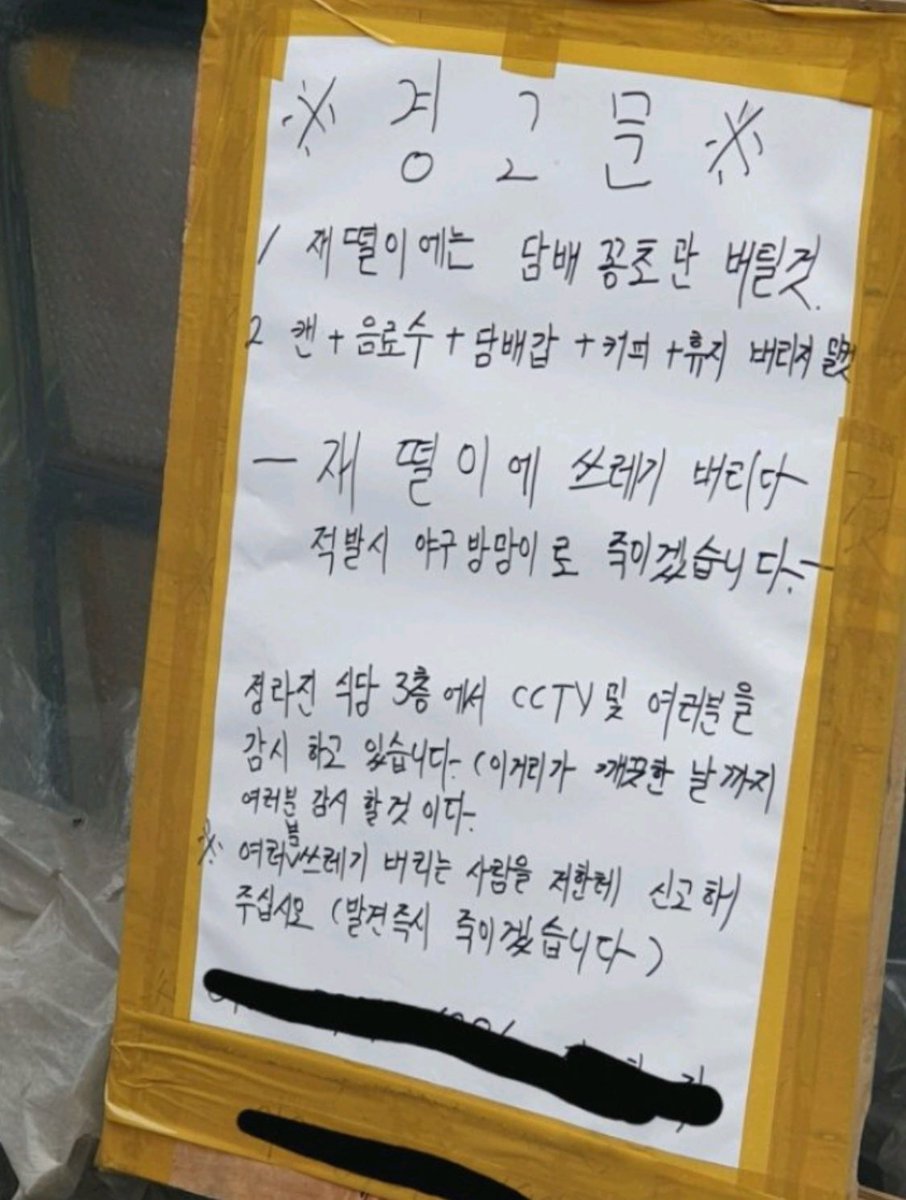 ※ 경고문 ※
1 재떨이에는 담배꽁초만 버릴것.
2 캔 + 음료수 + 담배갑 + 커피 + 휴지 버리지 말것
— 재떨이에 쓰레기 버리다
적발시 야구방망이로 죽이겠습니다. —
정라진 식당 3층에서 CCTV 및 여러분을
감시 하고 있습니다. (이거리가 깨끗한 날까지
여러분 감시 할것 이다.
※ 여러분 쓰레기 버리는 사람을 저한테 신고해
주십시오 (발견즉시 죽이겠습니다.)